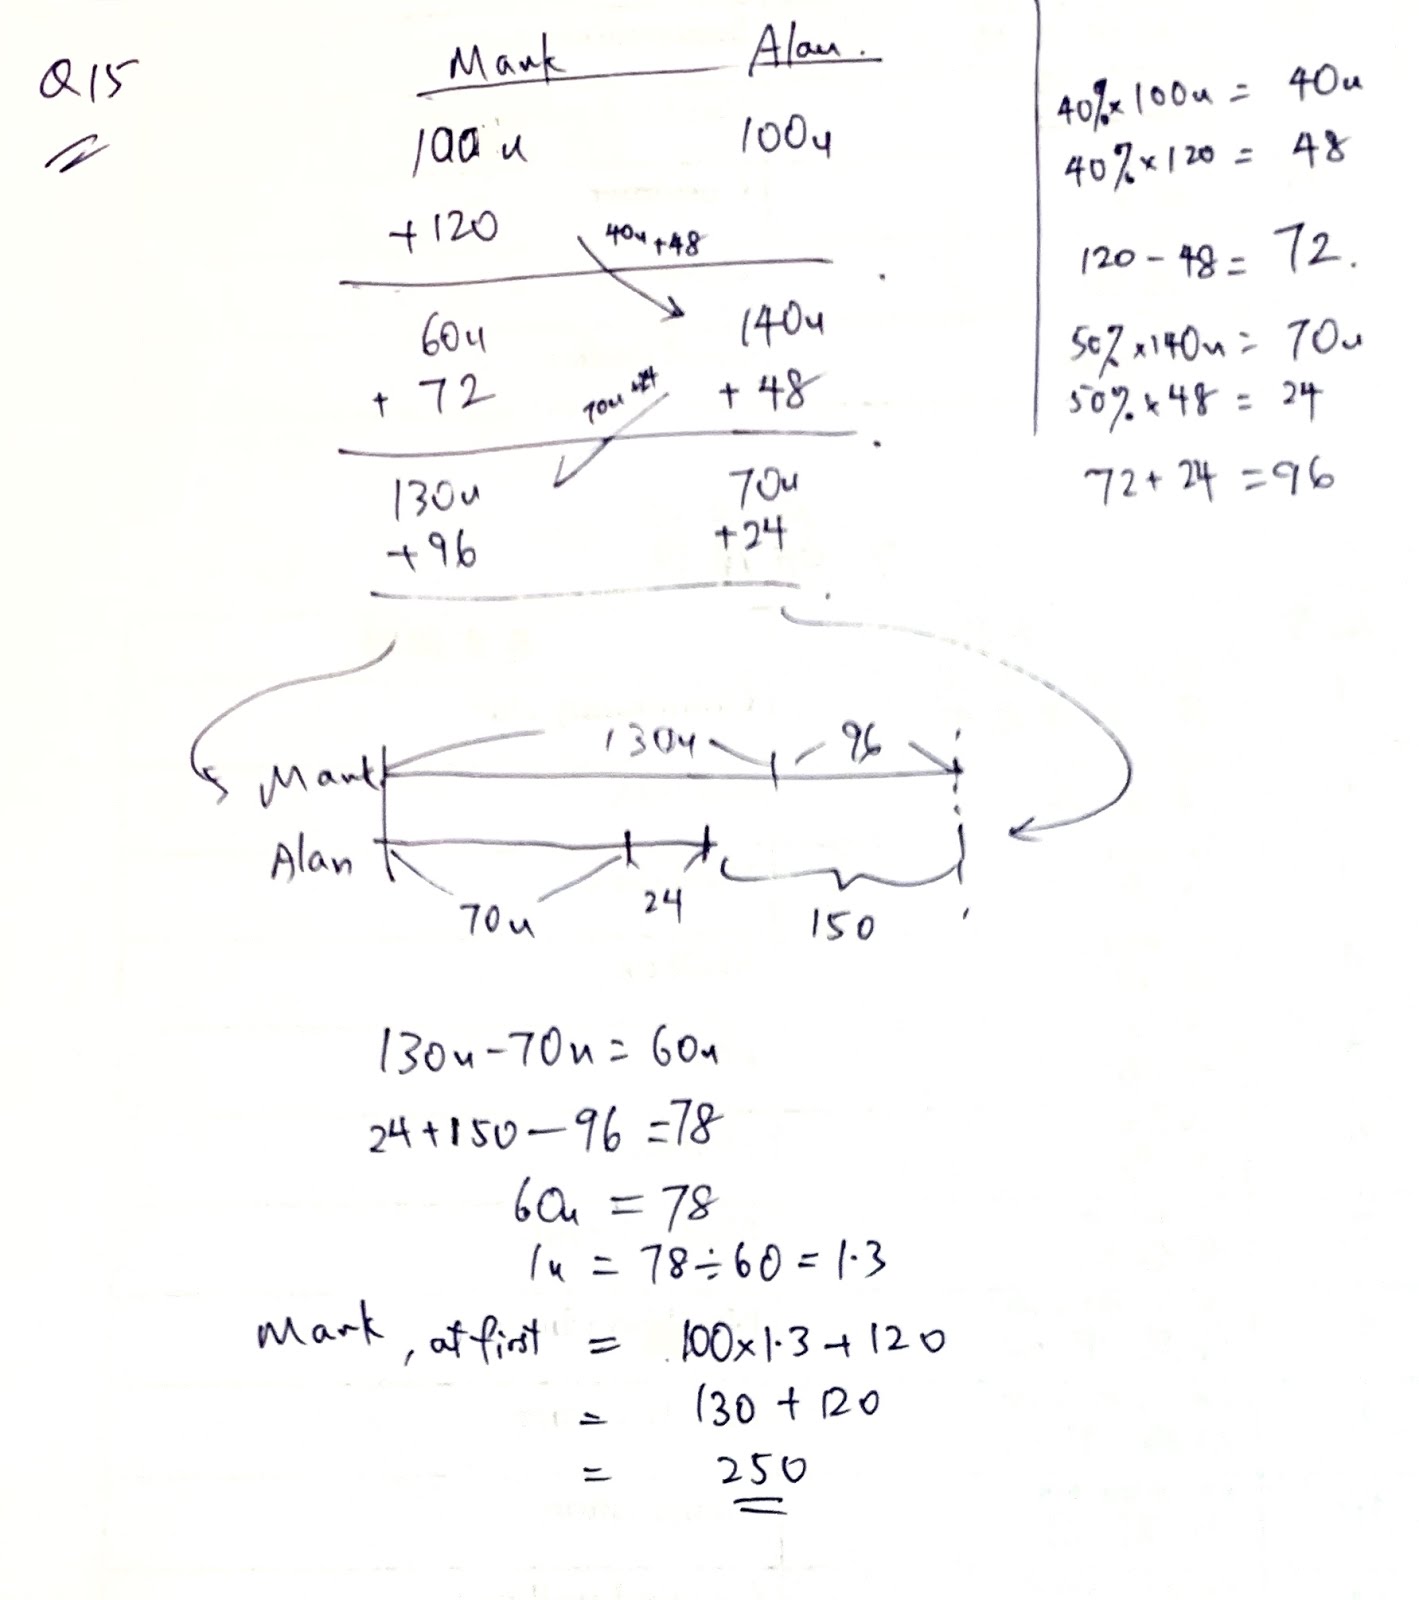 Q15
Mark Alan.
100u 100u
+120
40u+48
60u 140u
+ 72 + 48
70u
130u 70u
+96 +24
40%×100u = 40u
40%×120 = 48
120-48= 72.
50%×140u= 70u
50%×48 = 24
72+24 =96
130u 96
Mark
Alan
70u 24 150
130u-70u= 60u
24+150-96 =78
60u = 78
1u = 78÷60=1.3
Mark, at first = 100×1.3+120
= 130+120
= 250